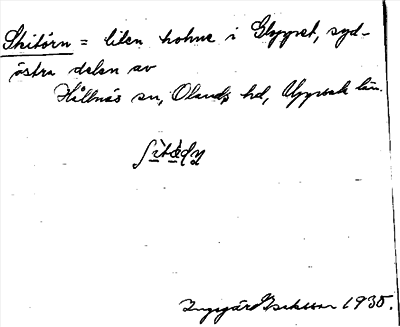 Skitörn = liten holme i Gloppet, syd-
östra delen av
Hållnäs sn, Olands hd, Uppsala län.
Ingegärd Isaksson 1935.